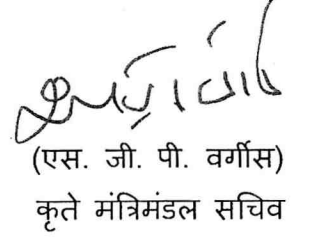 (एस. जी. पी. वर्गीस)
कृते मंत्रिमंडल सचिव